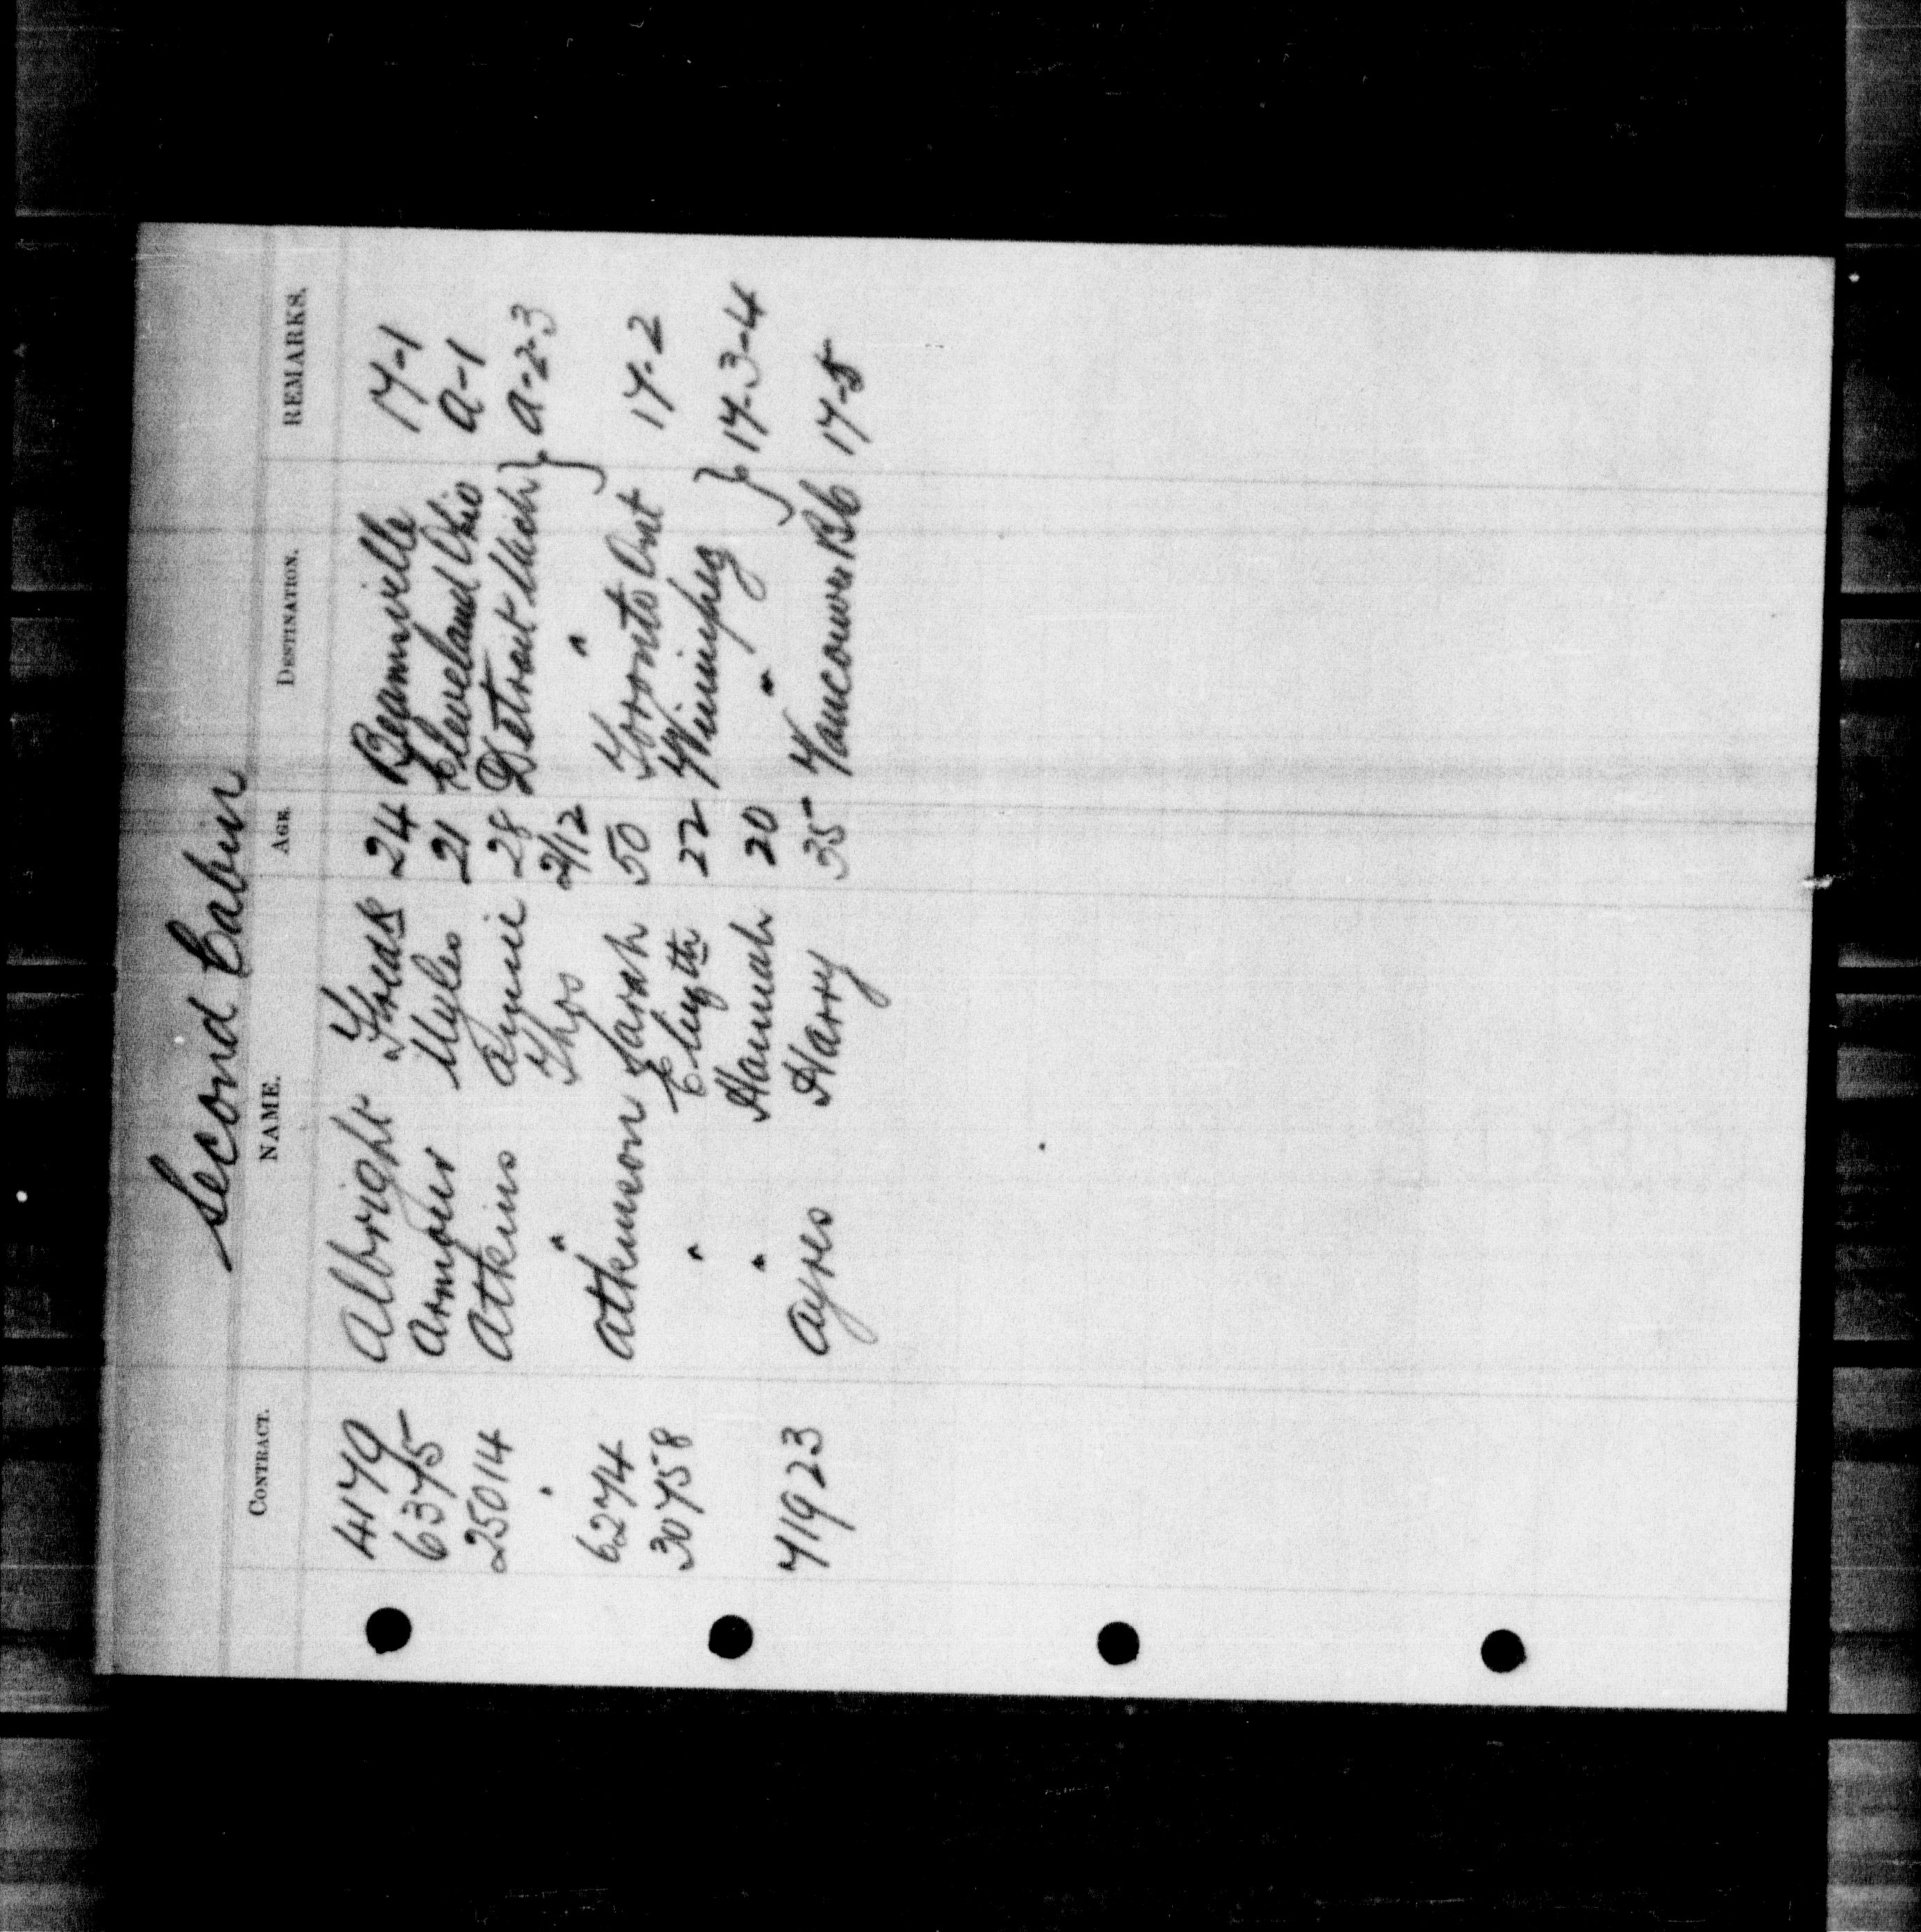 Second Cabin
CONTRACT. NAME. AGE DESTINATION. REMARKS.
4179 Albright Fredk 24 Beamsville 17-1
6375 Armour Myles 21 Cleveland Ohio A-1
25014 Atkins Annie 28 Detroit Mich } A-2-3
" " Thos 2/12 "
6274 Atkinson Sarah 50 Toronto Ont 17-2
30758 " Elizth 22 Winnipeg } 17-3-4
" Hannah 20 "
71923 Ayres Harry 35 Vancouver BC 17-5